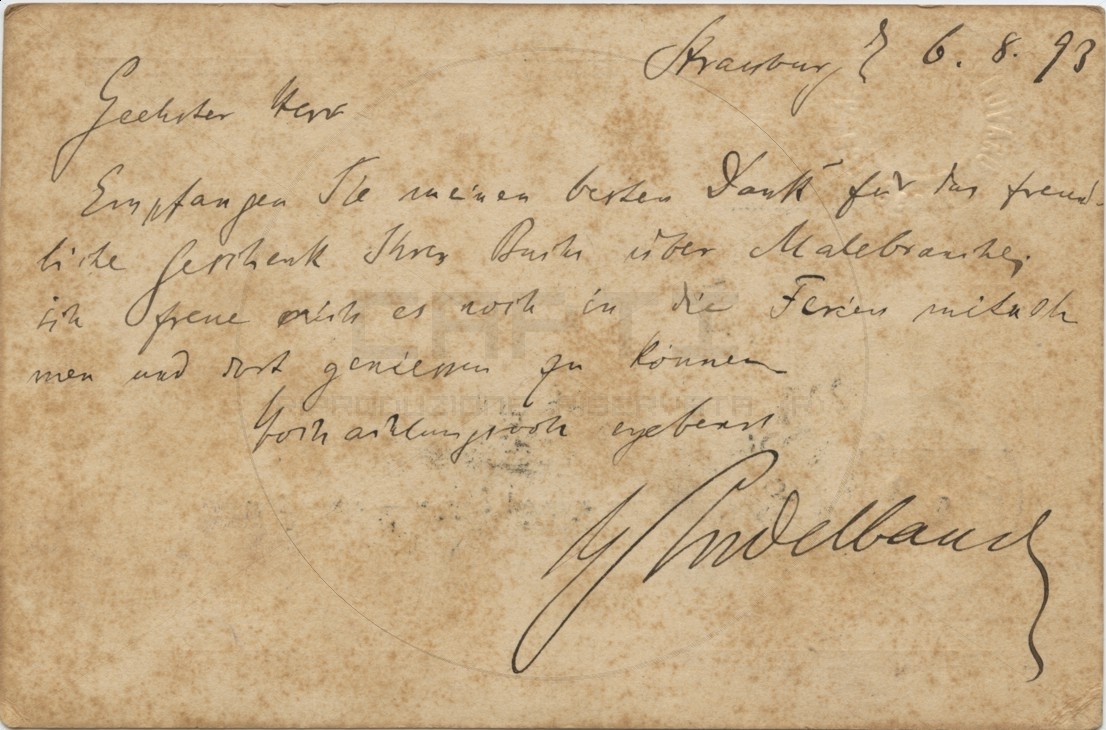 Strassburg, d 6. 8. 93
Geehrter Herr
Empfangen Sie meinen besten Dank für das freund-
liche Geschenk Ihres Buchs über Malebranche;
ich freue mich es noch in die Ferien mitneh
men und dort geniessen zu können
Hochachtungsvoll ergebenst
WWindelband